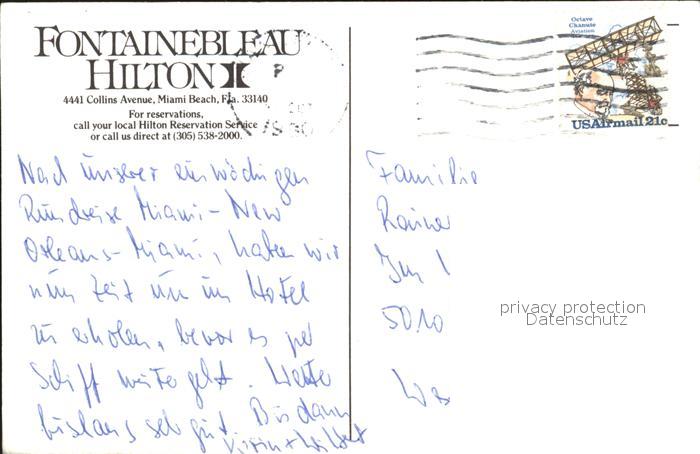 FONTAINEBLEAU
HILTON
4441 Collins Avenue, Miami Beach, Fla. 33140
For reservations,
call your local Hilton Reservation Service
or call us direct at (305) 538-2000.
Octave
Chanute
Aviation
USAirmail 21c
Nach unserer einwöchigen
Rundreise Miami - New
Orleans - Miami, haben wir
nun Zeit um im Hotel
zu erholen, bevor es per
Schiff weiter geht. Wetter
bislang sehr gut. Bis dann
Familie
Rainer
Im
5010
privacy protection
Datenschutz